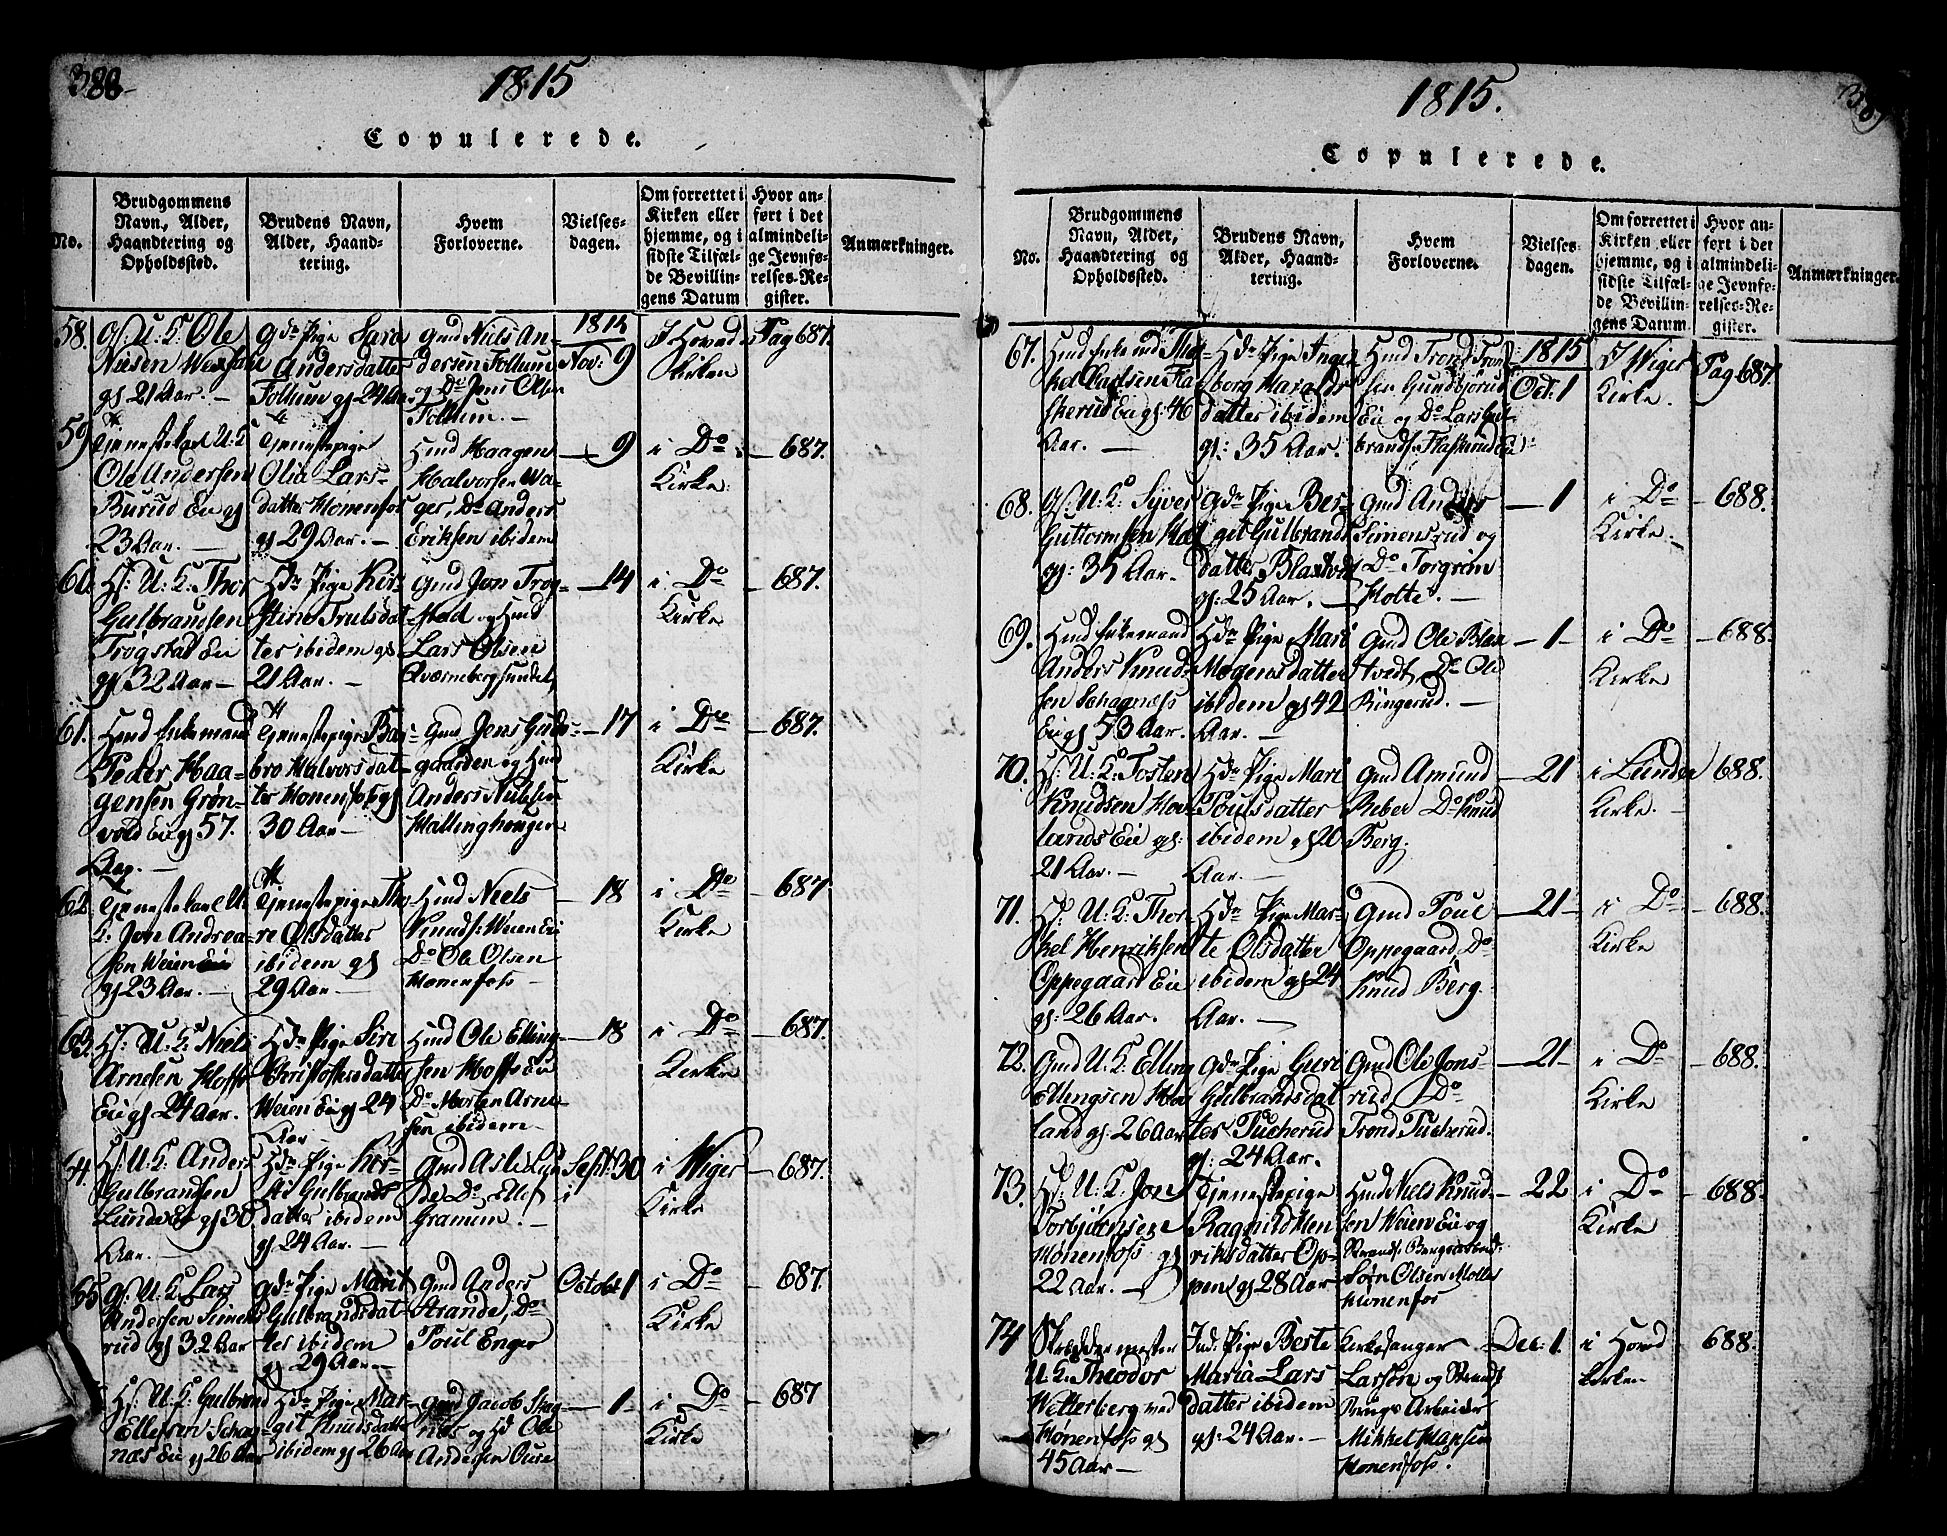 388
1815
Copulerede.
No.
Brudgommens
Navn, Alder,
Haandtering og
Opholdssted.
Brudens Navn,
Alder, Haand-
tering.
Hvem
Forloverne.
Vielses-
dagen.
Om forrettet i
Kirken eller
hjemme, og i
sidste Tilfæl-
de Bevillin-
gens Datum
Hvor an-
ført i det
almindeli-
ge Jevnfø-
relses-Re-
gister.
Anmærkninger.
58.
Gs: U: K: Ole
Nielsen
gs 21 Aar. —
Gdr Pige Sara
Andersdatter
Follum gs 24 Aar
Gmd Niels An-
dersen Follum
og Do Jens Olsen
Follum. —
Nov: 9
I Hovad
Kirken
Pag 687.
59
Tjenestekarl U: K
Ole Andersen
Burud Eu gs
23 Aar. —
Tjenestepige
Olia Lars-
datter Hønenfos
gs 29 Aar. —
Hmd Haagen
Halvorsen Wa-
ger, Do Anders
Eriksen ibidem
— 9
i Do
Kirke
— 687.
60
Hs: U: K: Thor
Gulbrandsen
Trøgstad Eu
gs 32 Aar —
Hdr Pige Kir-
stine Trulsdat-
ter ibidem gs
21 Aar. —
Gmd Jon Trøg-
stad og Hmd
Lars Olsen
Qværnbergsundet,
— 14
i Do
Kirke
— 687.
61.
Hmd Enkemand
Peder Haa-
gensen Grøn-
vold Eu gs 57.
Aar. —
Tjenestepige Bar-
bro Halvorsdat-
ter Hønenfos gs
30 Aar —
Gmd Jens Gud-
gaarden og Hmd
Anders Nielsen
Hallinghaugen
— 17
i Do
Kirke
— 687.
62
Tjenestekarl U:
K. Jon Andrea-
sen Weien Eu
gs 23 Aar. —
Tjenestepige Tho-
re Olsdatter
ibidem gs
29 Aar. —
Hmd Niels
Knuds: Weien Eu
Do Ole Olsen
Hønenfoss
— 18
i Do
Kirke
— 687
63.
Hs: U: K: Niels
Arnesen Hoff
Eu gs 24 Aar.
Hdr Pige Siri
Christophersdatter
Weien Eu gs 24
Aar —
Hmd Ole Elling-
sen Hoffs Eu
Do Morten Arne-
sen ibidem —
— 18
i Do
Kirke
— 687.
64.
Hs: U: K: Anders
Gulbrandsen
Lunde Eu gs 30
Aar. —
Hdr Pige Ker-
sti Gulbrands
datter ibidem
gs 24 Aar. —
Gmd Asle Lyn-
Do Ellef
Granum. —
Sept: 30
i Wiger
Kirke
— 687.
65
Gs: U: K: Lars
Andersen Simens
rud gs 32 Aar
Gdr Pige Marit
Gulbrandsdat-
ter ibidem
gs 29 Aar. —
Gmd Anders
Strande, Do
Poul Enger
Octobr 1
i Do
Kirke
— 687.
Hs: U: K: Gulbrand
Ellefsen Skag-
næs Eu gs 26 Aar
Hdr Pige Mar-
git Knudsdatter
ibidem gs 26 Aar
Gmd Jacob Skag-
næs og Hd Ole
Andersen
— 1 —
i Do
Kirke
— 687
389
1815.
Copulerede.
No.
Brudgommens
Navn, Alder,
Haandtering og
Opholdssted.
Brudens Navn,
Alder, Haand-
tering.
Hvem
Forloverne.
Vielses-
dagen.
Om forrettet i
Kirken eller
hjemme, og i
sidste Tilfæl-
de Bevillin-
gens Datum
Hvor an-
ført i det
almindeli-
ge Jevnfø-
relses-Re-
gister.
Anmærkninger.
67.
Hmd Enkemd Thor-
kel Carlsen Fla-
skerud Eu gs: 46
Aar. —
Hdr Pige Inge-
borg Haralds
datter ibidem
gs: 35 Aar.
Hmd Trond Trond
sen Gundbjørud
Eu og Do Lars Gul-
brands: Flaskerud Eu
1815
Oct: 1
I Wiger
Kirke.
Pag 687.
68.
Gs: U: K: Syver
Guttormsen
gs: 35 Aar.
Gdr Pige Ber-
git Gulbrands
datter Blaxtvedt
gs: 25 Aar. —
Gmd Anders
Simensrud og
Do Torgrim
Holte. —
— 1
i Do
Kirke. —
— 688.
69.
Hmd Enkemand
Anders Knud-
sen Skagnæss
Eu gs 53 Aar.
Hdr Pige Mari
Mogensdatter
ibidem gs 42
Aar. —
Gmd Ole Blax-
tvedt, Do Ole
Ringerud. —
— 1 —
i Do
Kirke
— 688.
70.
Hs: U: K: Tosten
Knudsen Hov-
lands Eu gs:
21 Aar. —
Hdr Pige Mari
Poulsdatter
ibidem gs 20
Aar. —
Gmd Amund
Reber Do Knud
Berg.
— 21
i Lunder
Kirke. —
688.
71.
Hs: U: K: Thor
kel Henriksen
Oppegaard Eu
gs: 26 Aar.
Hdr Pige Mar-
te Olsdatter
ibidem gs 24
Aar. —
Gmd Poul
Oppegaard, Do
Knud Berg.
— 21 —
i Do
Kirke
— 688.
72.
Gmd U: K. Elling
Ellingsen Hov
land gs: 26 Aar
Gdr Pige Guri
Gulbrandsdat
ter Tucherud
gs: 24 Aar.
Gmd Ole Jons-
rud, Do
Trond Tucherud.
— 21 —
i Do
Kirke
— 688.
73.
Hs: U: K. Jon
Torbjørnsen
Hønenfoss gs
22 Aar. —
Tjenestepige
Ragnild Hen
riksdatter Op-
pen gs 28 Aar
Hmd Niels Knud-
sen Weien Eu og
Strands:
Sørn Olsen Molle
Hønenfos
— 22
i Do
Kirke
— 688.
74
Skræddermester
U: K. Theodor
Wetterberg ved
Hønenfoss gs
45 Aar —
Ind: Pige Berte
Maria Lars
datter ibidem
gs: 24 Aar. —
Kirkesanger
Larsen og Strands
Brugs Arbeider
Mikkel Hansen
Hønenfoss.
Dec: 1.
i Hovd
Kirken
688.